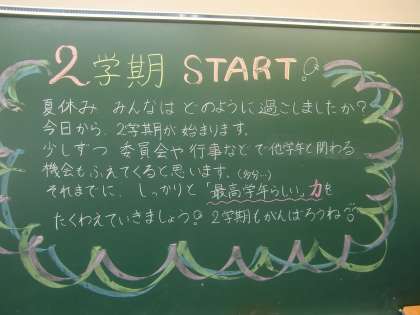 2学期 START!
夏休み みんなは どのように過ごしましたか?
今日から、2学期が始まります。
少しずつ 委員会や行事などで他学年と関わる
機会もふえてくると思います。(多分…)
それまでに、しっかりと「最高学年らしい」力を
たくわえていきましょう! 2学期もがんばろうね